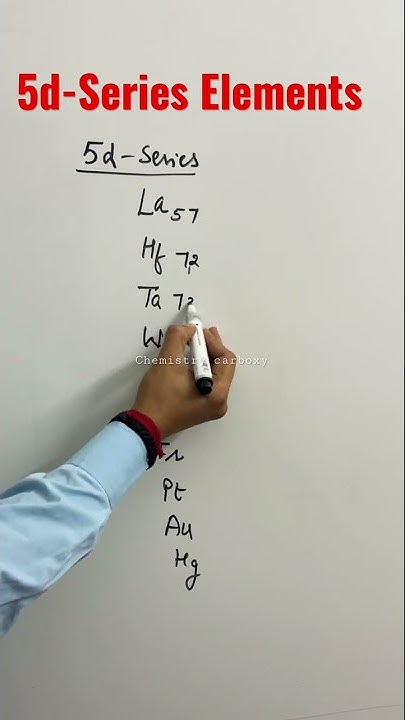 5d-Series Elements
5d-Series
La 57
Hf 72
Ta 73
W
Chemistry carboxy
Ir
Pt
Au
Hg